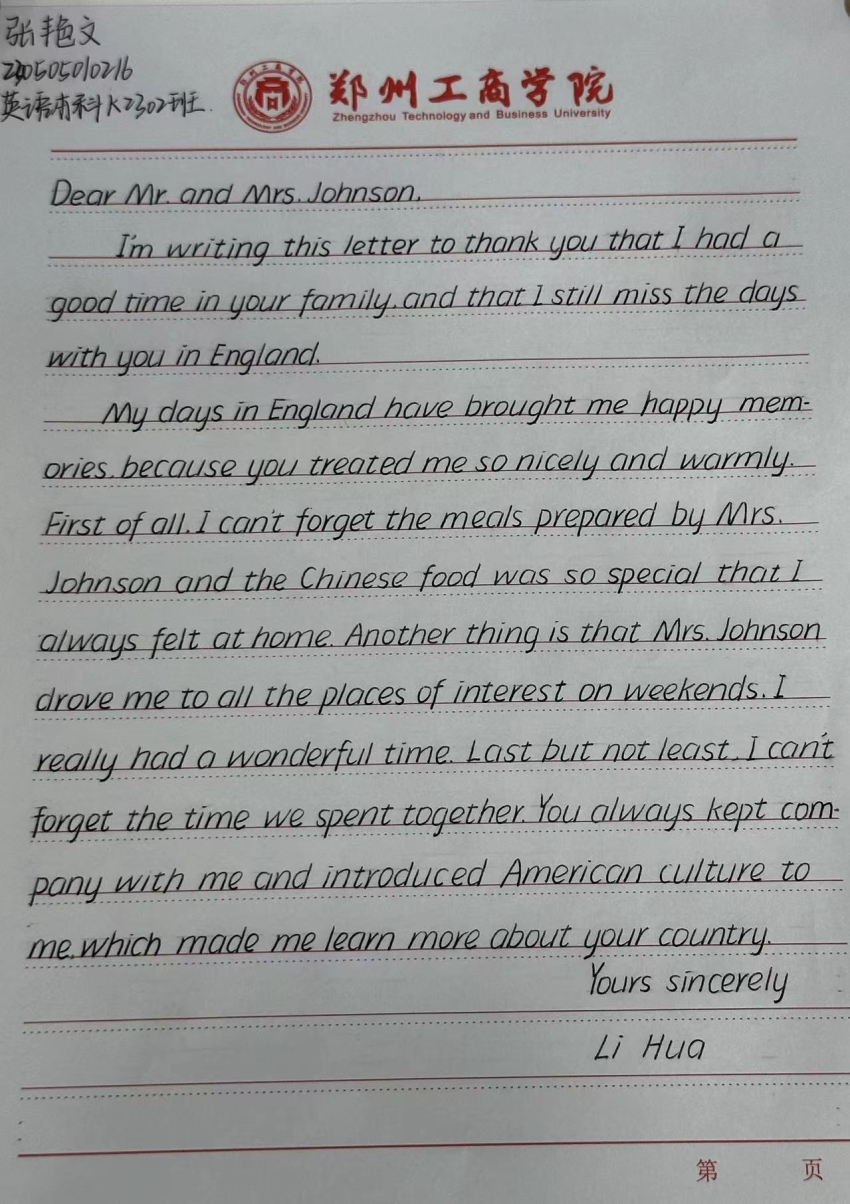 张艳文
230505010216
英语本科K2302班.
郑州工商学院
Zhengzhou Technology and Business University
Dear Mr. and Mrs. Johnson,
I'm writing this letter to thank you that I had a
good time in your family, and that I still miss the days
with you in England.
My days in England have brought me happy mem-
ories, because you treated me so nicely and warmly.
First of all, I can't forget the meals prepared by Mrs.
Johnson and the Chinese food was so special that I
always felt at home. Another thing is that Mrs. Johnson
drove me to all the places of interest on weekends. I
really had a wonderful time. Last but not least, I can't
forget the time we spent together. You always kept com-
pany with me and introduced American culture to
me, which made me learn more about your country.
Yours sincerely
Li Hua
第 页